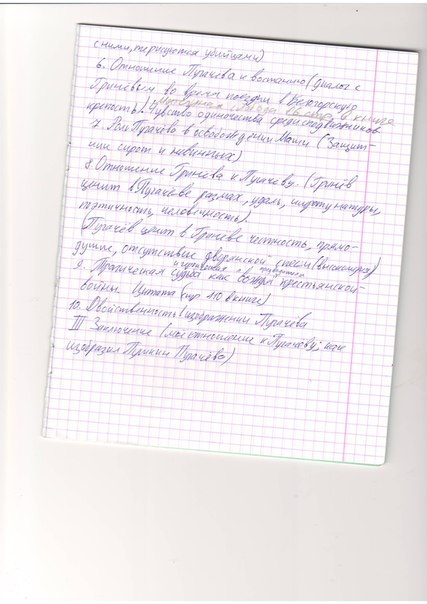 с ними, терпуются убийцами)
6. Отношение Пугачёва к восстанию (диалог с
Гринёвым во время поездки в Белогорскую
в книге
крепость). Чувство одиночества среди сподвижников
7. Роль Пугачёва в освобождении Маши (Защит-
ник сирот и невинных)
8. Отношение Гринёва к Пугачеву. (Гринёв
ценит в Пугачеве размах, удаль, широту натуры,
поэтичность, человечность)
(Пугачёв ценит в Гринёве честность, прямо-
душие, отсутствие дворянской спеси (высокомерия)
9. Трагическая судьба как вождя крестьянской
войны. Цитата (стр. 110 в книге)
10. Двойственность в изображении Пугачёва
III Заключение (моё отношение к Пугачёву; как
изобразил Пушкин Пугачёва)